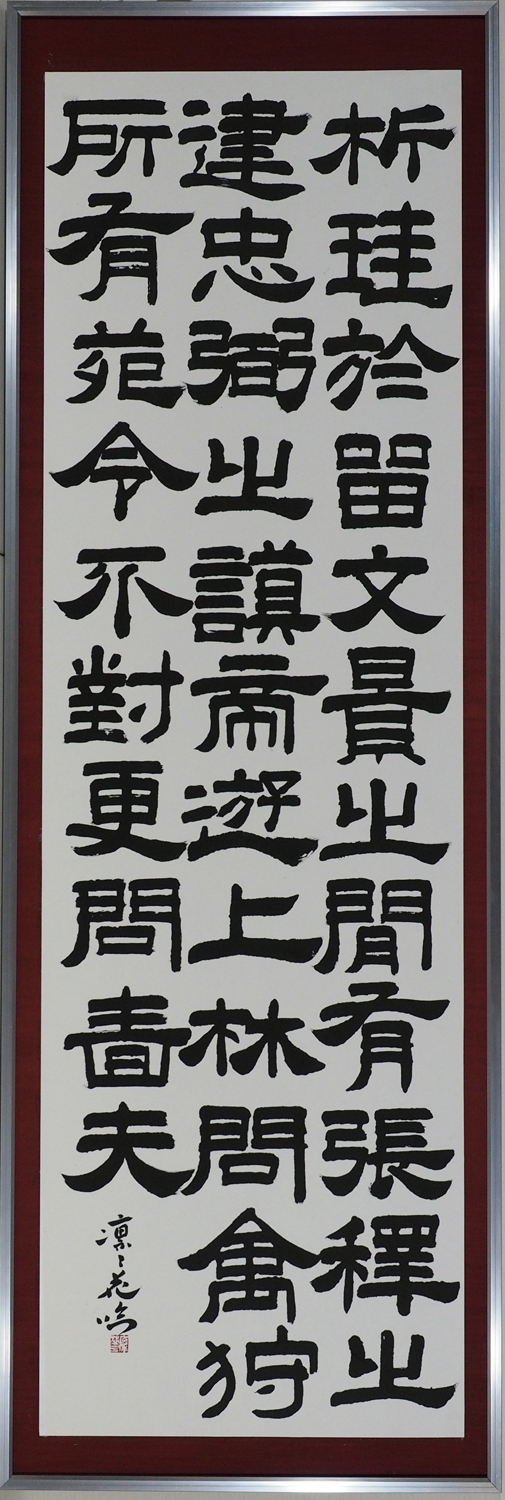 析珪於留文景之閒有張釋之
建忠弼之謨帝遊上林問禽狩
所有苑令不對更問嗇夫
凛々花吟